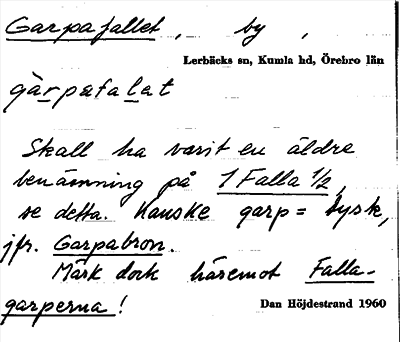 Garpafallet, by,
Lerbäcks sn, Kumla hd, Örebro län
gàrpafalat
Skall ha varit en äldre
benämning på 1 Falla 1/2,
se detta. Kanske garp = tysk,
jfr. Garpabron.
Märk dock häremot Falla-
garperna!
Dan Höjdestrand 1960